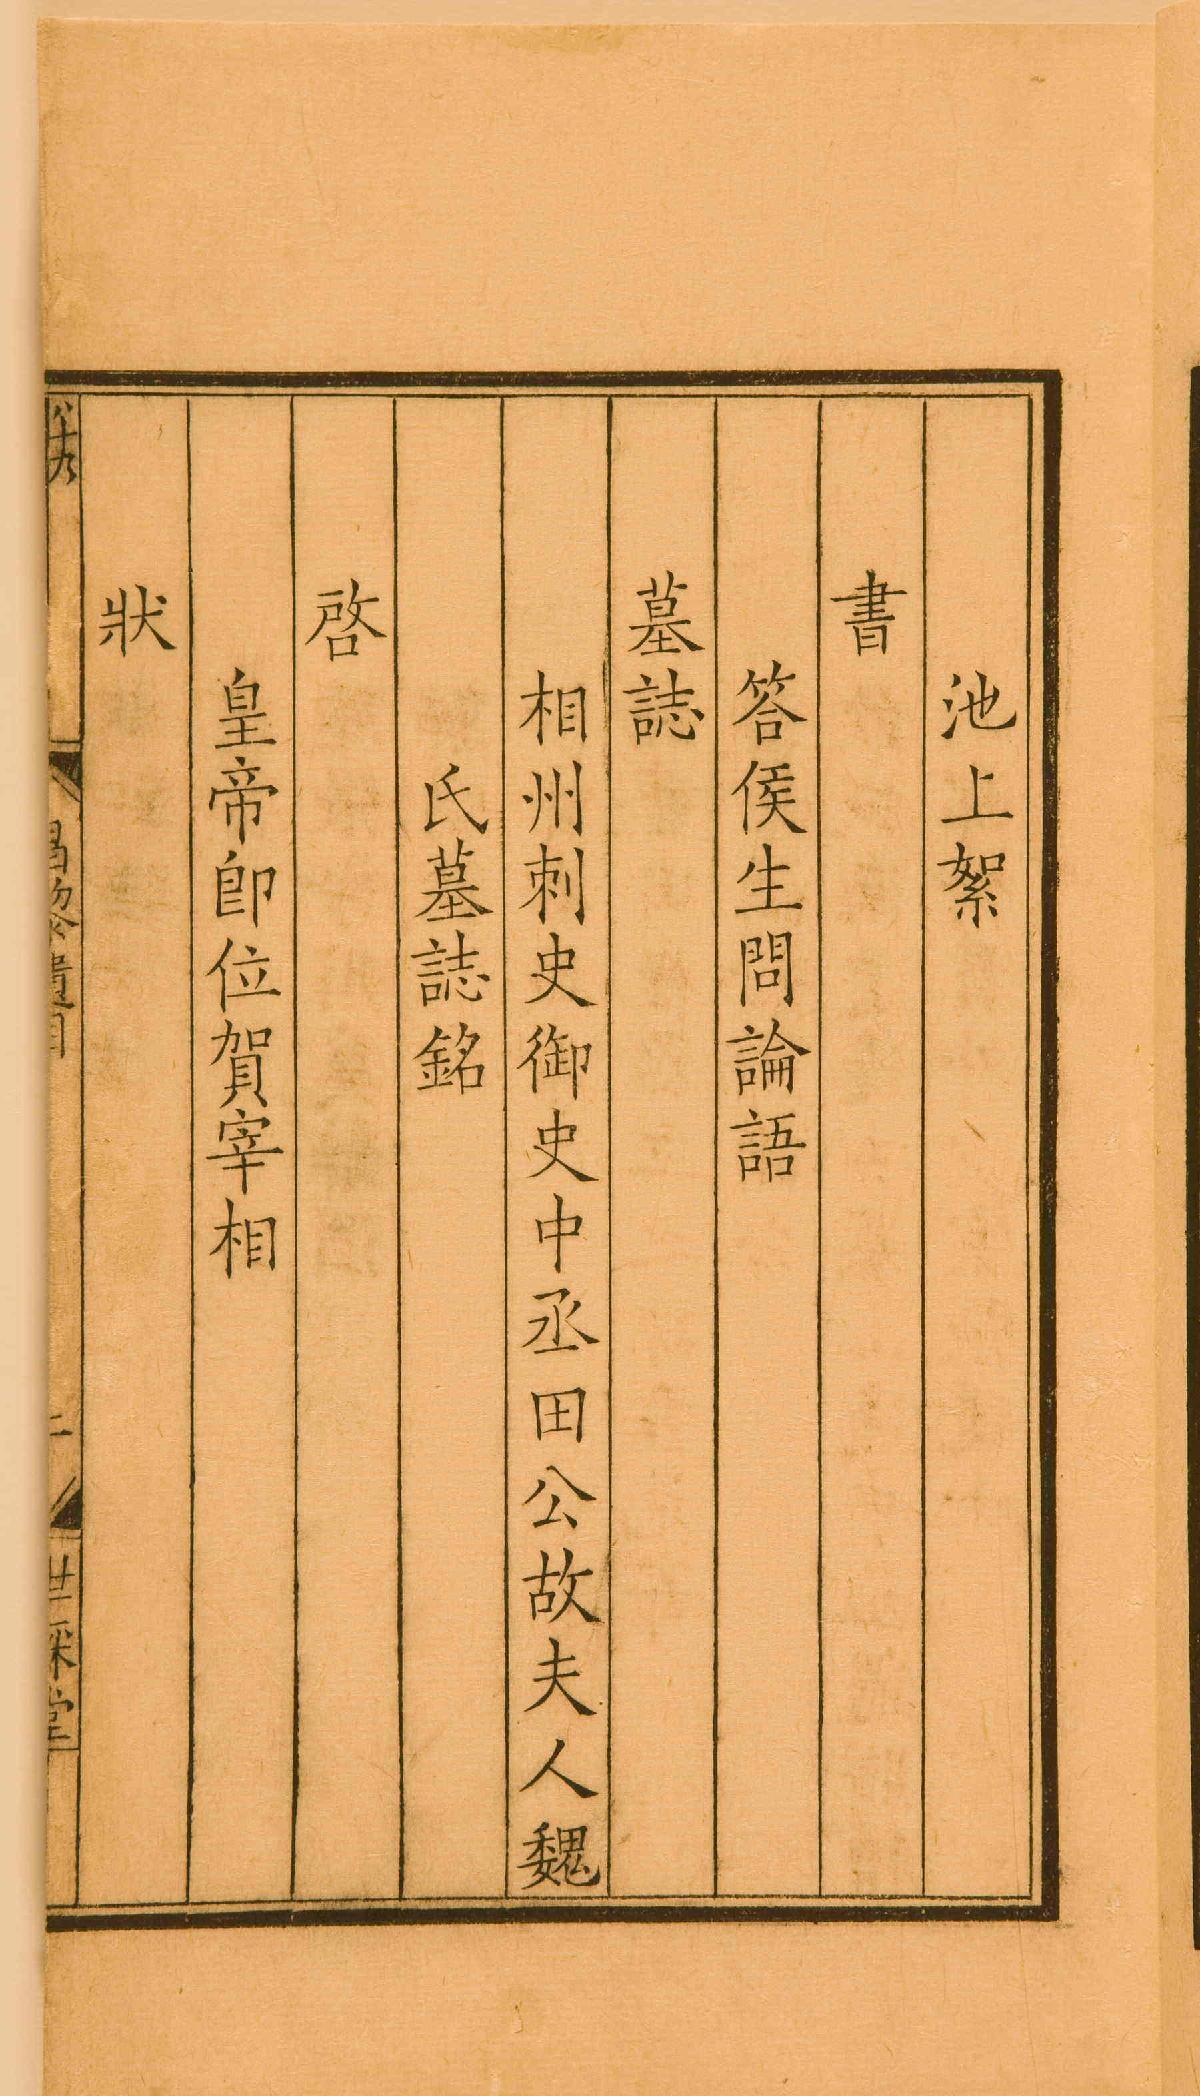 池上絮
書
答侯生問論語
墓誌
相州刺史御史中丞田公故夫人魏
氏墓誌銘
啓
皇帝卽位賀宰相
狀
昌黎遺目
世綵堂